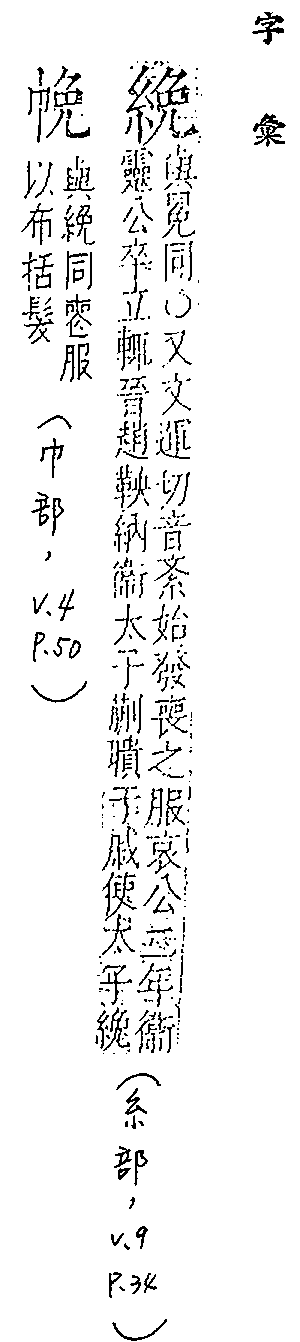 字彙
絻
與冕同○又文運切音紊始發喪之服哀公二年衞
靈公卒立輒晉趙鞅納衞太子蒯聵于戚使太子絻
(糸部,v.9 P.34)
帨
與絻同喪服
以布括髮
(巾部,v.4 P.50)